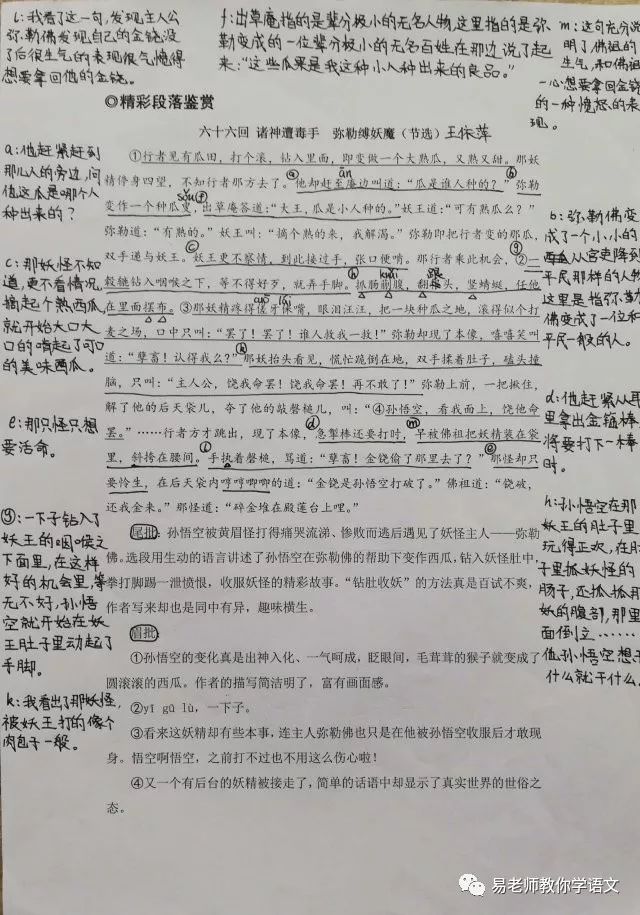 i：我看了这一句，发现主人公
弥勒佛发现自己的金铙没
了后很生气的表现很气愤得
想要拿回他的金铙。
f：出草庵指的是辈分极小的无名人物，这里指的是弥
勒变成的一位辈分极小的无名百姓在那边说了起
来：“这些瓜果是我这种小人种出来的良品。”
m：这句充分说
明了佛祖的
生气，和佛祖
一心想要拿回金铙
的一种愤怒的表
现。
◎精彩段落鉴赏
六十六回 诸神遭毒手 弥勒缚妖魔（节选）王依萍
a：他赶紧赶到
那儿人的旁边，问
值这瓜是哪个人
种出来的？
c：那妖怪不知
道，更不看情况，
摘起个熟西瓜
就开始大口大
口的啃起了可口
的美味西瓜。
e：那只怪只想
要活命。
g：一下子钻入了
妖王的咽喉之
下面里，在这样
好的机会里，等
无不好，孙悟
空就开始在妖
王肚子里动起了
手脚。
k：我看出了那妖怪，
被妖王打的像个
肉包子一般。
①行者见有瓜田，打个滚，钻入里面，即变做一个大熟瓜，又熟又甜。那妖
精停身四望，不知行者那方去了。他却赶至庵边叫道：“瓜是谁人种的？”弥勒
变作一个种瓜叟，出草庵答道：“大王，瓜是小人种的。”妖王道：“可有熟瓜么？”
弥勒道：“有熟的。”妖王叫：“摘个熟的来，我解渴。”弥勒即把行者变的那瓜，
双手递与妖王。妖王更不察情，到此接过手，张口便啃。那行者乘此机会，②一
毂辘钻入咽喉之下，等不得好歹，就弄手脚。抓肠蒯腹，翻根头，竖蜻蜓，任他
在里面摆布。③那妖精疼得傞牙俫嘴，眼泪汪汪，把一块种瓜之地，滚得似个打
麦之场，口中只叫：“罢了！罢了！谁人救我一救！”弥勒却现了本像，嘻嘻笑叫
道：“孽畜！认得我么？”那妖抬头看见，慌忙跪倒在地，双手揉着肚子，磕头撞
脑，只叫：“主人公，饶我命罢！饶我命罢！再不敢了！”弥勒上前，一把揪住，
解了他的后天袋儿，夺了他的敲磬槌儿，叫：“④孙悟空，看我面上，饶他命
罢。”……行者方才跳出，现了本像，急掣棒还要打时，早被佛祖把妖精装在袋
里，斜挎在腰间。手执着磬槌，骂道：“孽畜！金铙偷了那里去了？”那怪却只
要怜生，在后天袋内哼哼唧唧的道：“金铙是孙悟空打破了。”佛祖道：“铙破，
还我金来。”那怪道：“碎金堆在殿莲台上哩。”
尾批：孙悟空被黄眉怪打得痛哭流涕、惨败而逃后遇见了妖怪主人——弥勒
佛。选段用生动的语言讲述了孙悟空在弥勒佛的帮助下变作西瓜，钻入妖怪肚中，
拳打脚踢一泄愤恨，收服妖怪的精彩故事。“钻肚收妖”的方法真是百试不爽，
作者写来却也是同中有异，趣味横生。
眉批：
①孙悟空的变化真是出神入化、一气呵成，眨眼间，毛茸茸的猴子就变成了
圆滚滚的西瓜。作者的描写简洁明了，富有画面感。
②yī gū lù，一下子。
③看来这妖精却有些本事，连主人弥勒佛也只是在他被孙悟空收服后才敢现
身。悟空啊悟空，之前打不过也不用这么伤心啦！
④又一个有后台的妖精被接走了，简单的话语中却显示了真实世界的世俗之
态。
b：弥勒佛变
成了一个小小的
从人宫更降到
平民那样的人物
这里是指弥勒
佛变成了一位和
平民一般的人。
d：他赶紧从耳
里拿出金箍棒，
将要打下一棒
时。
h：孙悟空在那
妖王的肚子里
玩得正欢，在肚
子里抓妖怪的
肠子，还抓抓那
妖的腹部，那里
面倒立……
但孙悟空想干
什么就干什么。
易老师教你学语文